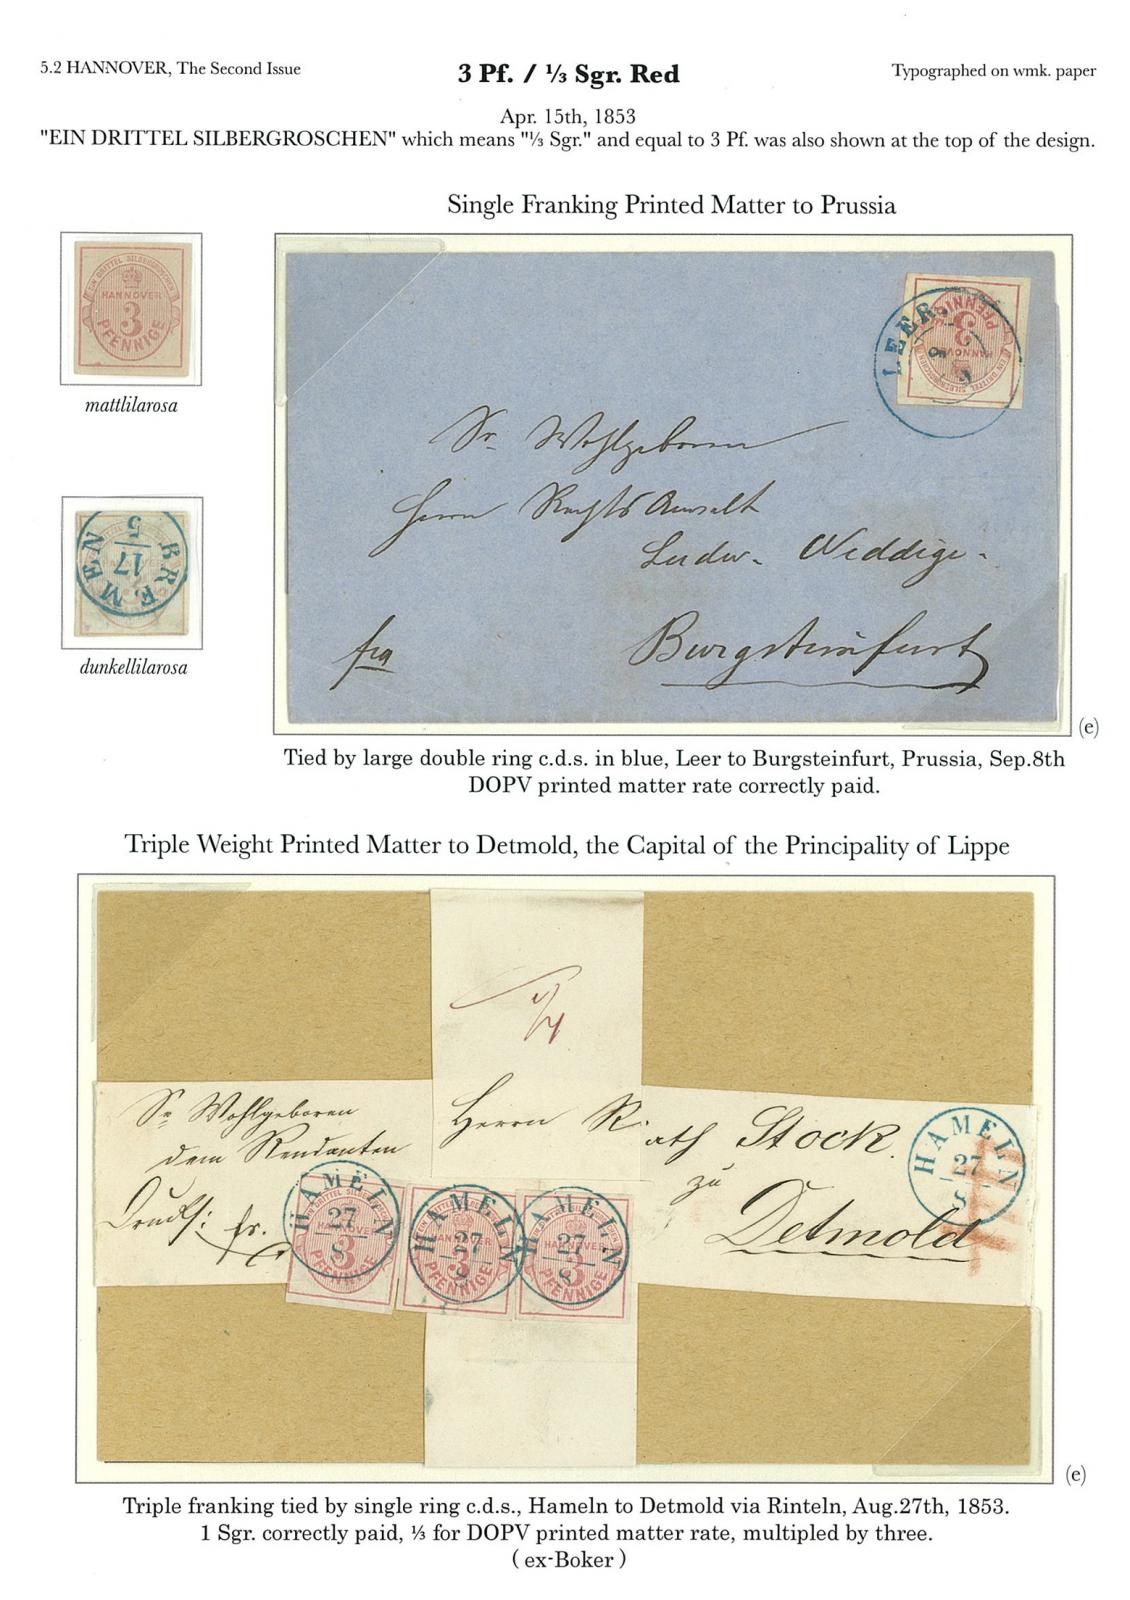 5.2 HANNOVER, The Second Issue
3 Pf. / ⅓ Sgr. Red
Typographed on wmk. paper
Apr. 15th, 1853
"EIN DRITTEL SILBERGROSCHEN" which means "⅓ Sgr." and equal to 3 Pf. was also shown at the top of the design.
Single Franking Printed Matter to Prussia
EIN DRITTEL SILBERGROSCHEN
HANNOVER
3
PFENNIGE
mattlilarosa
BREMEN
17
5
dunkellilarosa
LEER
EIN DRITTEL SILBERGROSCHEN
HANNOVER
3
PFENNIGE
Sr. Wohlgeboren
Herrn Rechts Anwalt
Ludw. Weddige.
fra
Burgsteinfurt
(e)
Tied by large double ring c.d.s. in blue, Leer to Burgsteinfurt, Prussia, Sep.8th
DOPV printed matter rate correctly paid.
Triple Weight Printed Matter to Detmold, the Capital of the Principality of Lippe
Sr Wohlgeboren
dem Rendanten
Herrn Rath Stock.
zu
Detmold
fr.
HAMELN
27
8
HANNOVER
3
PFENNIGE
HAMELN
27
8
HANNOVER
3
PFENNIGE
HAMELN
27
8
HANNOVER
3
PFENNIGE
HAMELN
27
8
(e)
Triple franking tied by single ring c.d.s., Hameln to Detmold via Rinteln, Aug.27th, 1853.
1 Sgr. correctly paid, ⅓ for DOPV printed matter rate, multipled by three.
( ex-Boker )